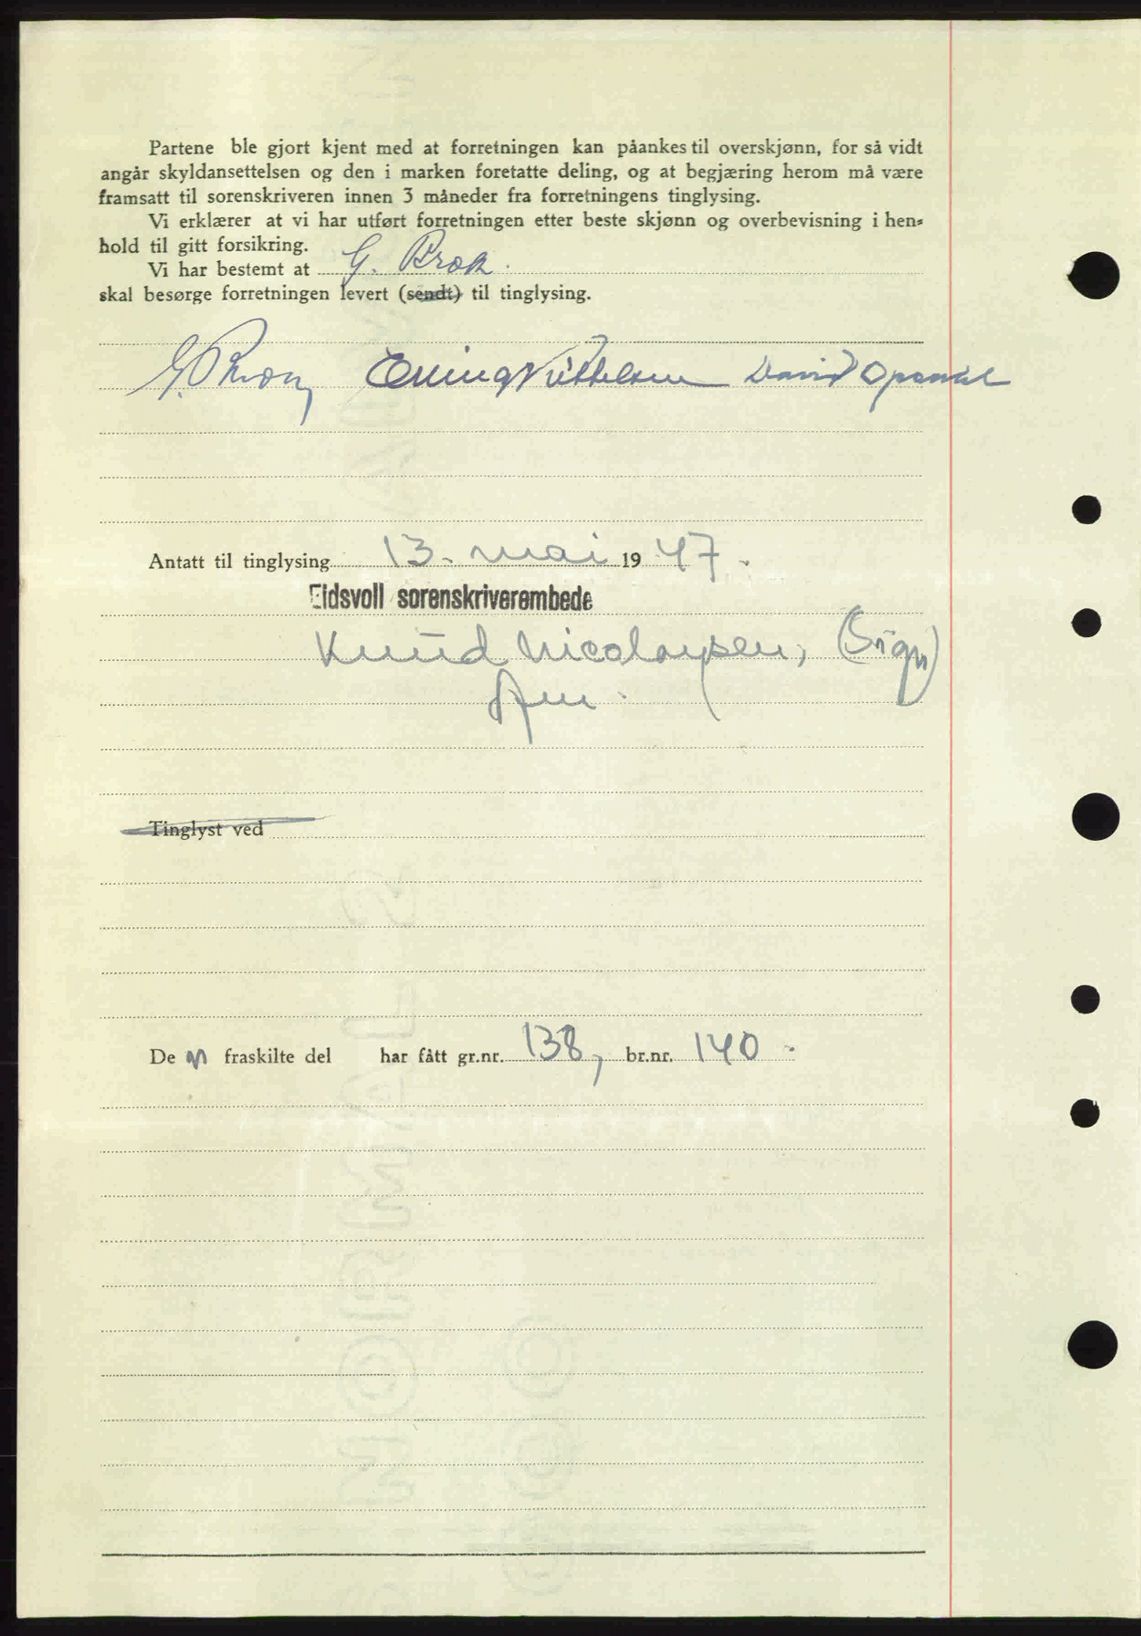 Partene ble gjort kjent med at forretningen kan påankes til overskjønn, for så vidt
angår skyldansettelsen og den i marken foretatte deling, og at begjæring herom må være
framsatt til sorenskriveren innen 3 måneder fra forretningens tinglysing.
Vi erklærer at vi har utført forretningen etter beste skjønn og overbevisning i hen-
hold til gitt forsikring.
Vi har bestemt at G.
skal besørge forretningen levert (sendt) til tinglysing.
David
Antatt til tinglysing 13. mai 1947.
Eidsvoll sorenskriverembede
Knud Nicolaysen, (Sign)
Tinglyst ved
De n fraskilte del har fått gr.nr. 138, br.nr. 140.